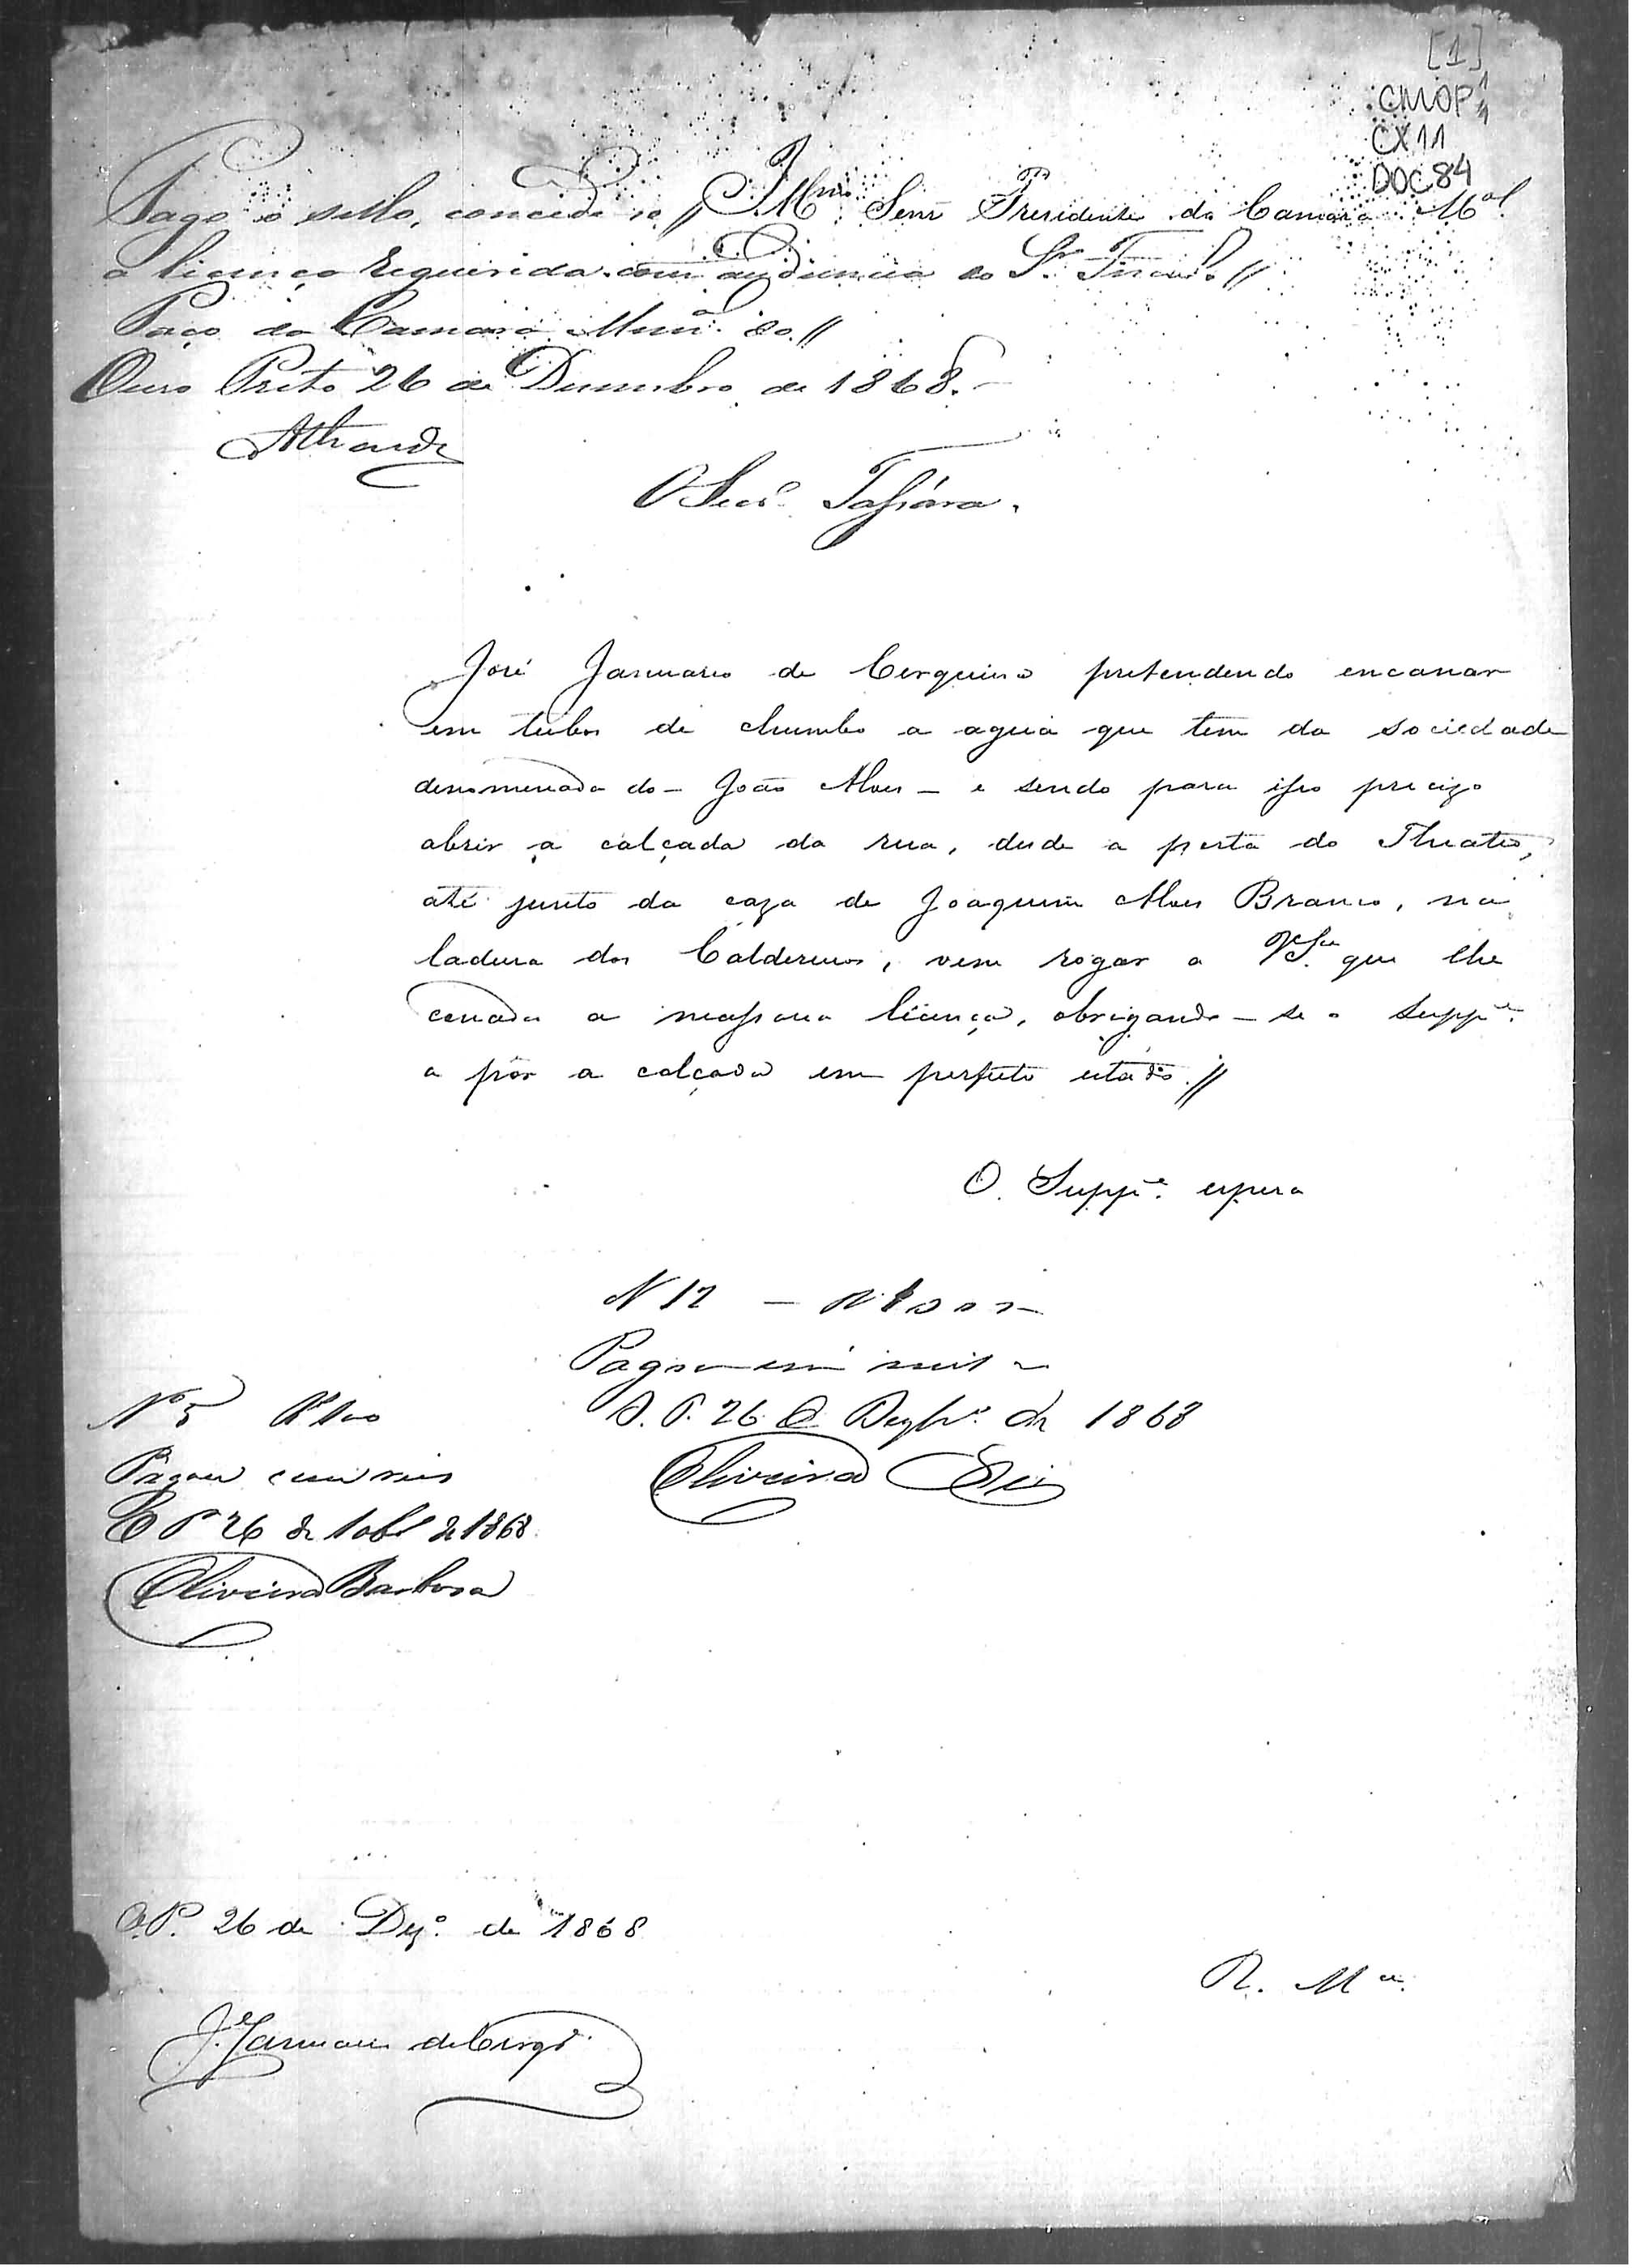 [1]
CMOP
CX11
DOC84
Pago o sello, concede-se //
Illmo. Senr. Presidente da Camara Mal.
a licença requerida com audiencia do Sr. Fiscal //
Paço da Camara Munal. do //
Ouro Preto 26 de Dezembro de 1868.
O Secro.
José Januario de Cerqueira pretendendo encanar
em tubos de chumbo a agua que tem da sociedade
denominada do - João Alves - e sendo para isso precizo
abrir a calçada da rua, desde a porta do Theatro,
até junto da caza de Joaquim Alves Branco, na
ladeira dos Caldereiros, vem rogar a V.Sa. que lhe
conceda a necessaria licença, obrigando-se o Suppe.
a pôr a calçada em perfeito estado. //
O Suppe. espera
N 12
Pagou mil
O. P. 26 de Dezbro. de 1868
Oliveira
No 5 Rs 100
Pagou cem reis
O P 26 de 10bro de 1868
Oliveira Barbosa
O.P. 26 de Dezo. de 1868
R. Mce.
J. Januario de Cerqa.